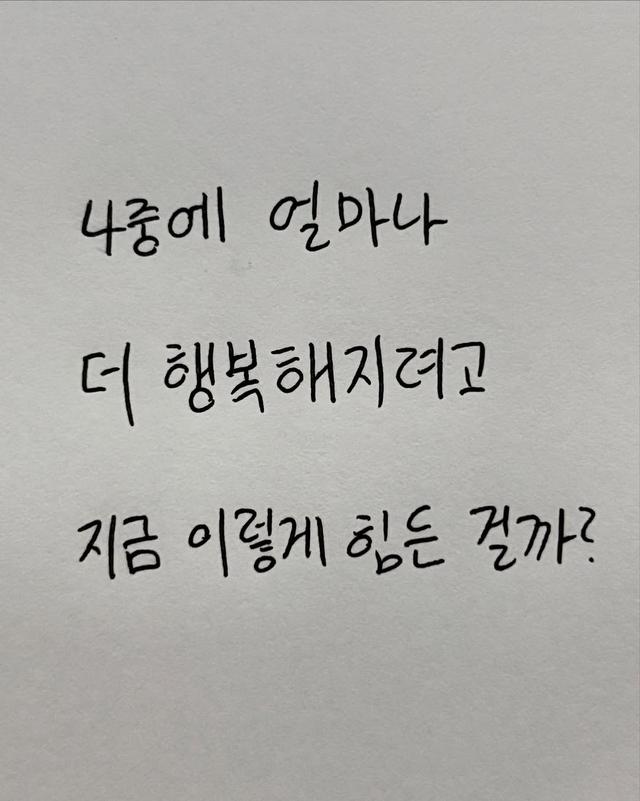 나중에 얼마나
더 행복해지려고
지금 이렇게 힘든 걸까?